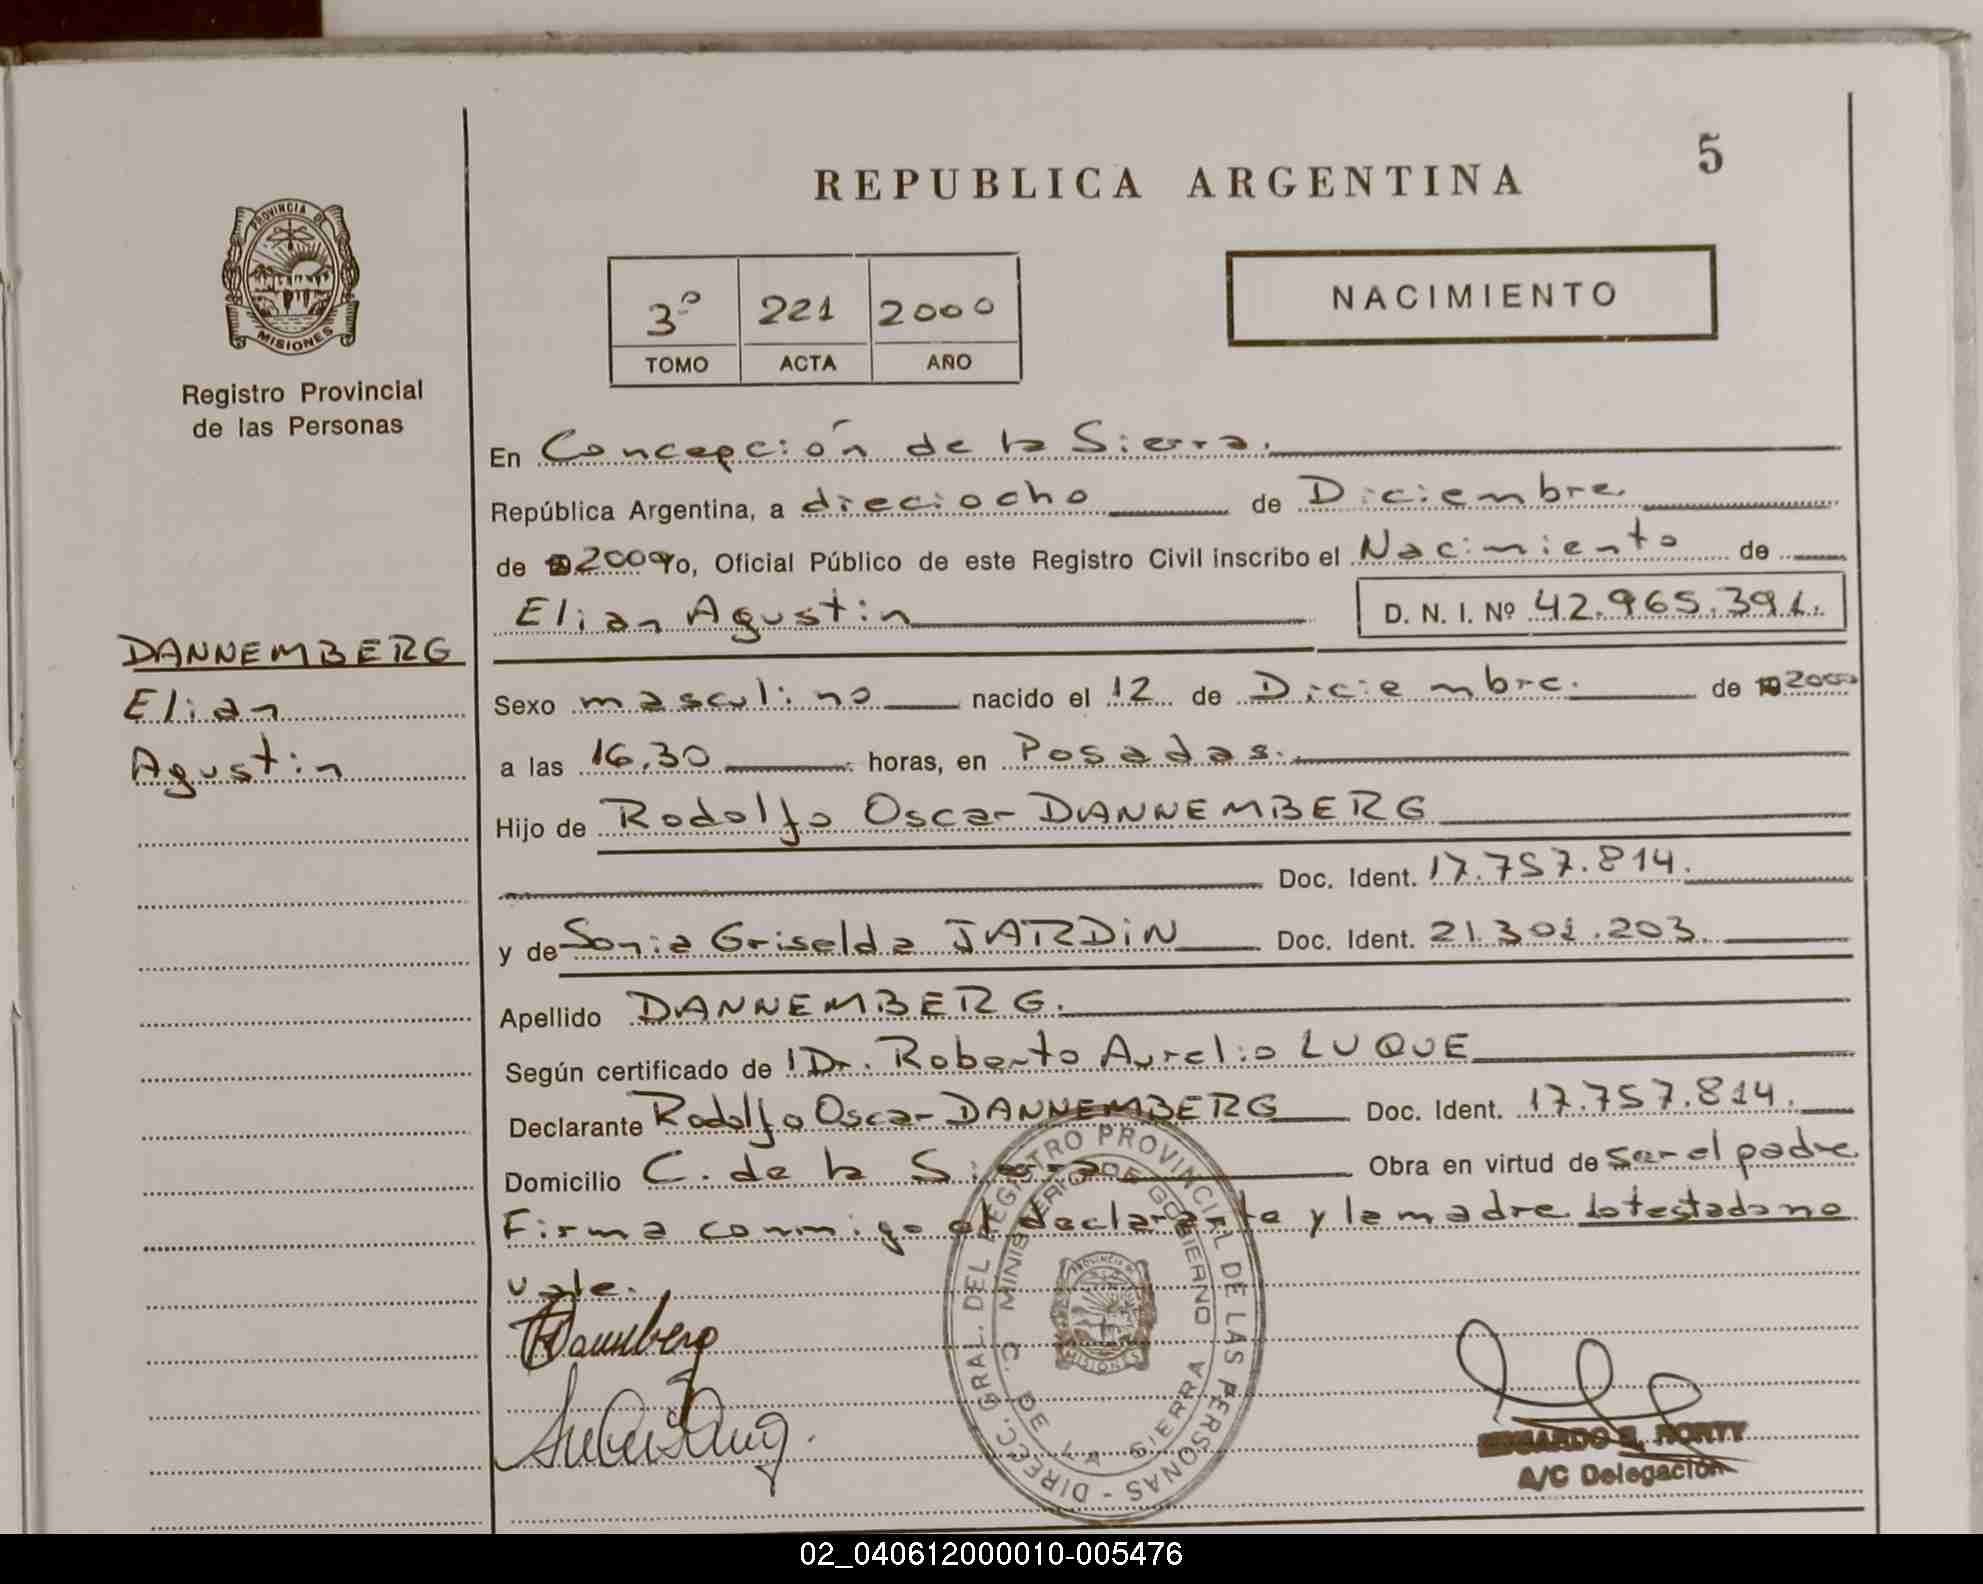 5
REPUBLICA ARGENTINA
PROVINCIA DE
MISIONES
Registro Provincial
de las Personas
3º 221 2000
TOMO ACTA AÑO
NACIMIENTO
En Concepción de la Sierra.
República Argentina, a dieciocho de Diciembre.
de 2000 Yo, Oficial Público de este Registro Civil inscribo el Nacimiento de
Elian Agustin D. N. I. Nº 42.965.391.
DANNEMBERG
Elian
Agustin
Sexo masculino nacido el 12 de Diciembre. de 2000
a las 16,30 horas, en Posadas.
Hijo de Rodolfo Oscar DANNEMBERG
Doc. Ident. 17.757.814.
y de Sonia Griselda JARDIN Doc. Ident. 21.301.203.
Apellido DANNEMBERG.
Según certificado de Dr. Roberto Aurelio LUQUE
Declarante Rodolfo Oscar DANNEMBERG Doc. Ident. 17.757.814.
Domicilio C. de la Sierra Obra en virtud de ser el padre
Firma conmigo el declarante y la madre lo testado no
vale.
DIRECC. GRAL. DEL REGISTRO PROVINCIAL DE LAS PERSONAS -
MINISTERIO DE GOBIERNO
C. DE LA SIERRA
PROVINCIA DE
MISIONES
A/C Delegación
02_040612000010-005476